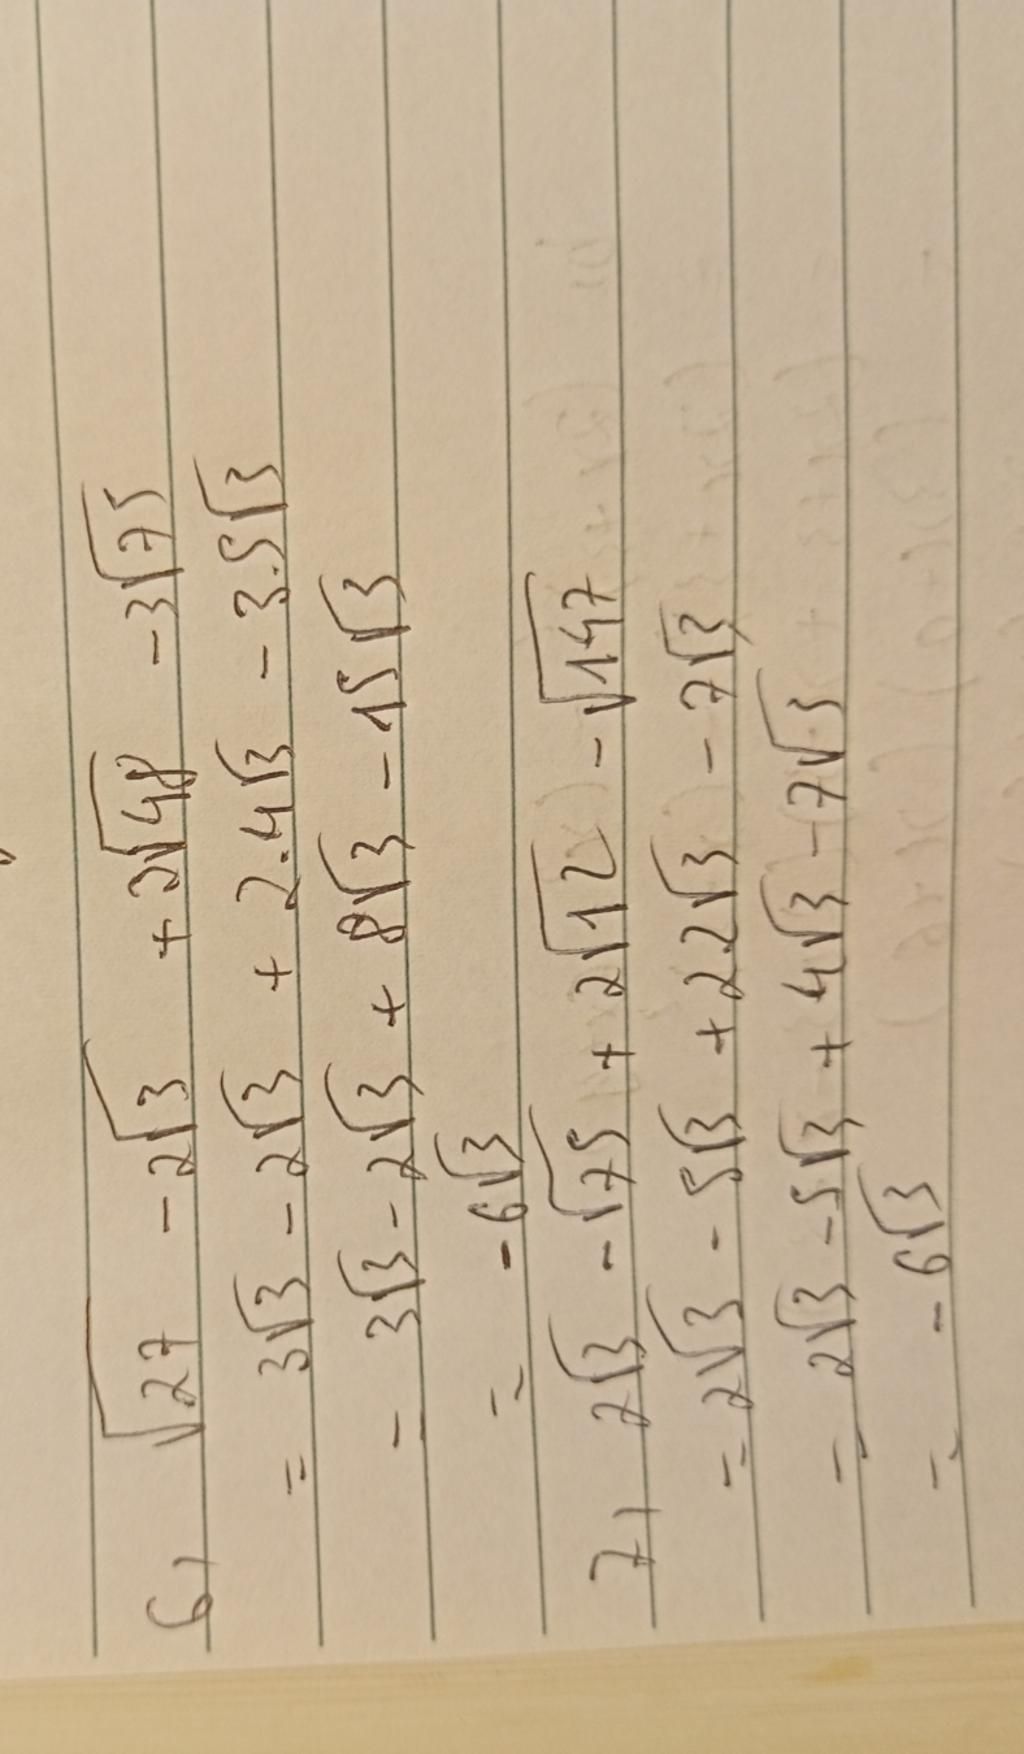 6, √27 - 2√3 + 2√48 - 3√75
= 3√3 - 2√3 + 2.4√3 - 3.5√3
= 3√3 - 2√3 + 8√3 - 15√3
= - 6√3
7, 2√3 - √75 + 2√12 - √147
= 2√3 - 5√3 + 2.2√3 - 7√3
= 2√3 - 5√3 + 4√3 - 7√3
= - 6√3